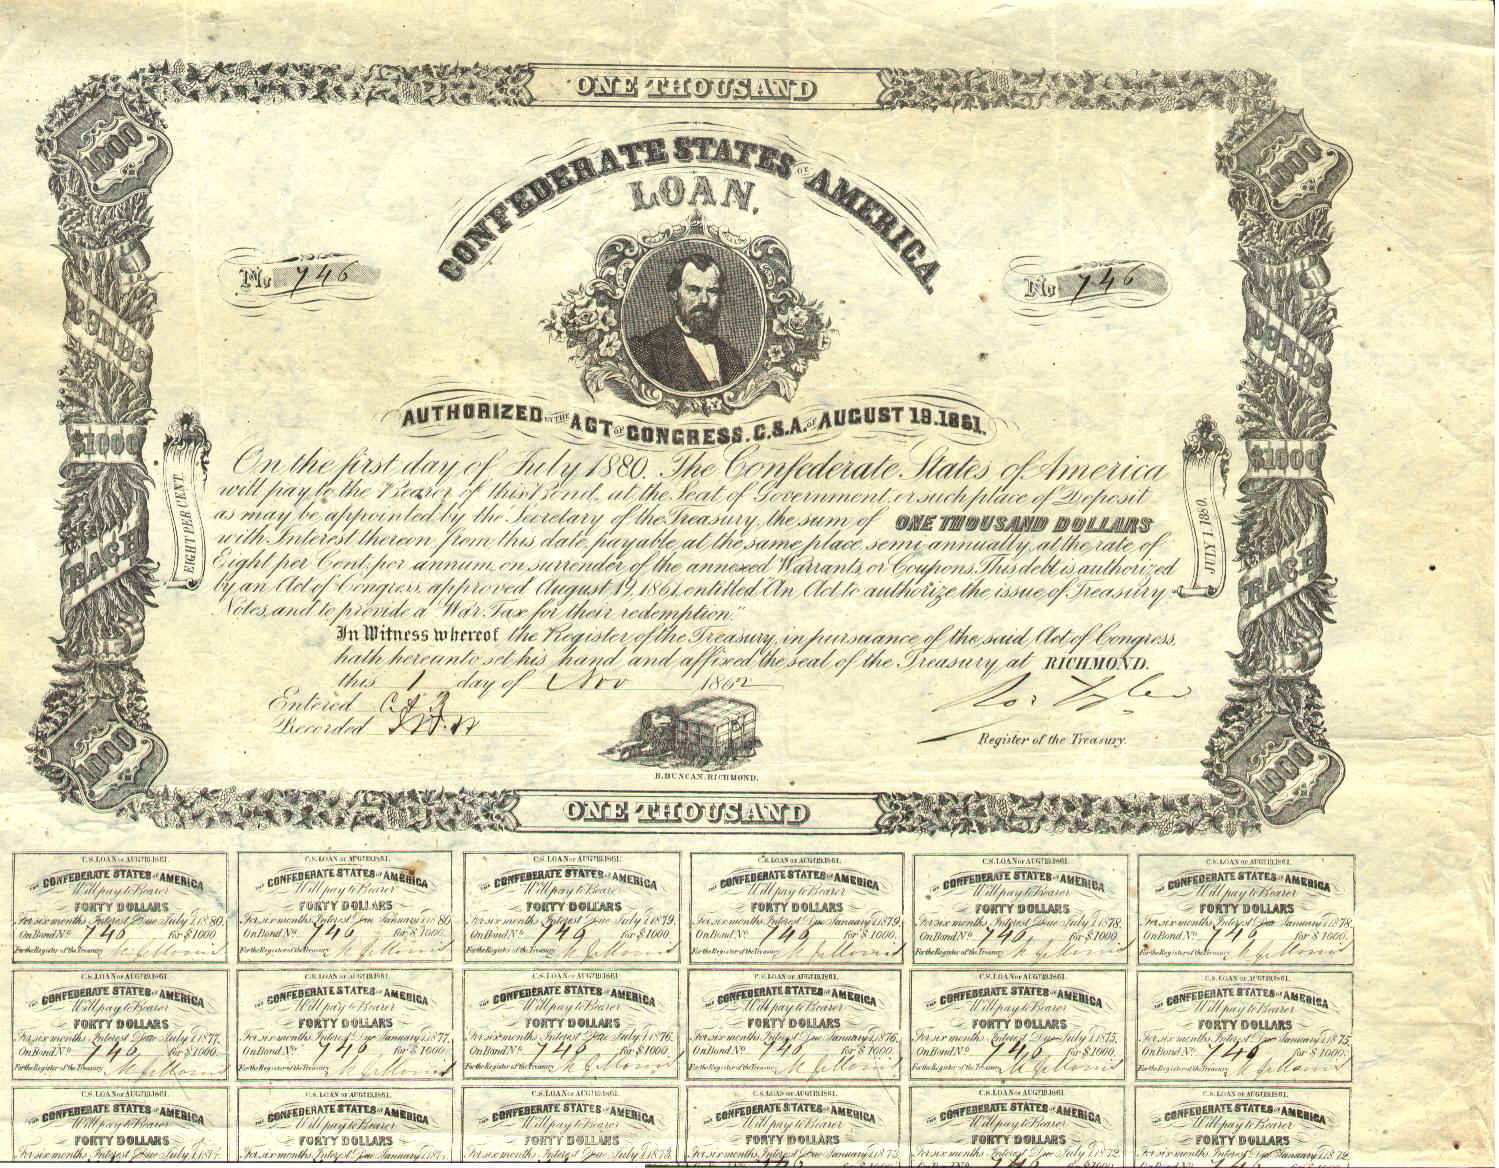 ONE THOUSAND
1000
1000
CONFEDERATE STATES OF AMERICA.
LOAN,
No 746
No 746
BONDS
BONDS
AUTHORIZED BY THE ACT OF CONGRESS. C.S.A. OF AUGUST 19. 1861.
$1000
$1000
EIGHT PER CENT.
JULY 1. 1880.
EACH
EACH
On the first day of July 1880. The Confederate States of America
will pay to the Bearer of this Bond, at the Seat of Government, or such place of Deposit
as may be appointed by the Secretary of the Treasury, the sum of ONE THOUSAND DOLLARS
with Interest thereon from this date, payable at the same place semi annually, at the rate of
Eight per Cent. per annum, on surrender of the annexed Warrants, or Coupons. This debt is authorized
by an Act of Congress, approved August 19, 1861, entitled "An Act to authorize the issue of Treasury
Notes, and to provide a War Tax for their redemption."
In Witness whereof the Register of the Treasury, in pursuance of the said Act of Congress,
hath hereunto set his hand and affixed the seal of the Treasury, at RICHMOND.
this 1 day of Nov 1862
Entered
Recorded
Register of the Treasury.
B. DUNCAN. RICHMOND.
1000
1000
ONE THOUSAND
C.S. LOAN OF AUG 19. 1861.
THE CONFEDERATE STATES OF AMERICA
Will pay to Bearer
FORTY DOLLARS
For six months Interest Due July 1 1880.
On Bond No. 746 for $1000.
For the Register of the Treasury
C.S. LOAN OF AUG 19. 1861.
THE CONFEDERATE STATES OF AMERICA
Will pay to Bearer
FORTY DOLLARS
For six months Interest Due January 1 1880.
On Bond No. 746 for $1000.
For the Register of the Treasury
C.S. LOAN OF AUG 19. 1861.
THE CONFEDERATE STATES OF AMERICA
Will pay to Bearer
FORTY DOLLARS
For six months Interest Due July 1 1879.
On Bond No. 746 for $1000.
For the Register of the Treasury
C.S. LOAN OF AUG 19. 1861.
THE CONFEDERATE STATES OF AMERICA
Will pay to Bearer
FORTY DOLLARS
For six months Interest Due January 1 1879.
On Bond No. 746 for $1000.
For the Register of the Treasury
C.S. LOAN OF AUG 19. 1861.
THE CONFEDERATE STATES OF AMERICA
Will pay to Bearer
FORTY DOLLARS
For six months Interest Due July 1 1878.
On Bond No. 746 for $1000.
For the Register of the Treasury
C.S. LOAN OF AUG 19. 1861.
THE CONFEDERATE STATES OF AMERICA
Will pay to Bearer
FORTY DOLLARS
For six months Interest Due January 1 1878.
On Bond No. 746 for $1000.
For the Register of the Treasury
C.S. LOAN OF AUG 19. 1861.
THE CONFEDERATE STATES OF AMERICA
Will pay to Bearer
FORTY DOLLARS
For six months Interest Due July 1 1877.
On Bond No. 746 for $1000.
For the Register of the Treasury
C.S. LOAN OF AUG 19. 1861.
THE CONFEDERATE STATES OF AMERICA
Will pay to Bearer
FORTY DOLLARS
For six months Interest Due January 1 1877.
On Bond No. 746 for $1000.
For the Register of the Treasury
C.S. LOAN OF AUG 19. 1861.
THE CONFEDERATE STATES OF AMERICA
Will pay to Bearer
FORTY DOLLARS
For six months Interest Due July 1 1876.
On Bond No. 746 for $1000.
For the Register of the Treasury
C.S. LOAN OF AUG 19. 1861.
THE CONFEDERATE STATES OF AMERICA
Will pay to Bearer
FORTY DOLLARS
For six months Interest Due January 1 1876.
On Bond No. 746 for $1000.
For the Register of the Treasury
C.S. LOAN OF AUG 19. 1861.
THE CONFEDERATE STATES OF AMERICA
Will pay to Bearer
FORTY DOLLARS
For six months Interest Due July 1 1875.
On Bond No. 746 for $1000.
For the Register of the Treasury
C.S. LOAN OF AUG 19. 1861.
THE CONFEDERATE STATES OF AMERICA
Will pay to Bearer
FORTY DOLLARS
For six months Interest Due January 1 1875.
On Bond No. 746 for $1000.
For the Register of the Treasury
C.S. LOAN OF AUG 19. 1861.
THE CONFEDERATE STATES OF AMERICA
Will pay to Bearer
FORTY DOLLARS
For six months Interest Due July 1
C.S. LOAN OF AUG 19. 1861.
THE CONFEDERATE STATES OF AMERICA
Will pay to Bearer
FORTY DOLLARS
For six months Interest Due January 1
C.S. LOAN OF AUG 19. 1861.
THE CONFEDERATE STATES OF AMERICA
Will pay to Bearer
FORTY DOLLARS
For six months Interest Due July 1 1873.
C.S. LOAN OF AUG 19. 1861.
THE CONFEDERATE STATES OF AMERICA
Will pay to Bearer
FORTY DOLLARS
For six months Interest Due January 1 1873.
C.S. LOAN OF AUG 19. 1861.
THE CONFEDERATE STATES OF AMERICA
Will pay to Bearer
FORTY DOLLARS
For six months Interest Due July 1 1872.
C.S. LOAN OF AUG 19. 1861.
THE CONFEDERATE STATES OF AMERICA
Will pay to Bearer
FORTY DOLLARS
For six months Interest Due January 1 1872.